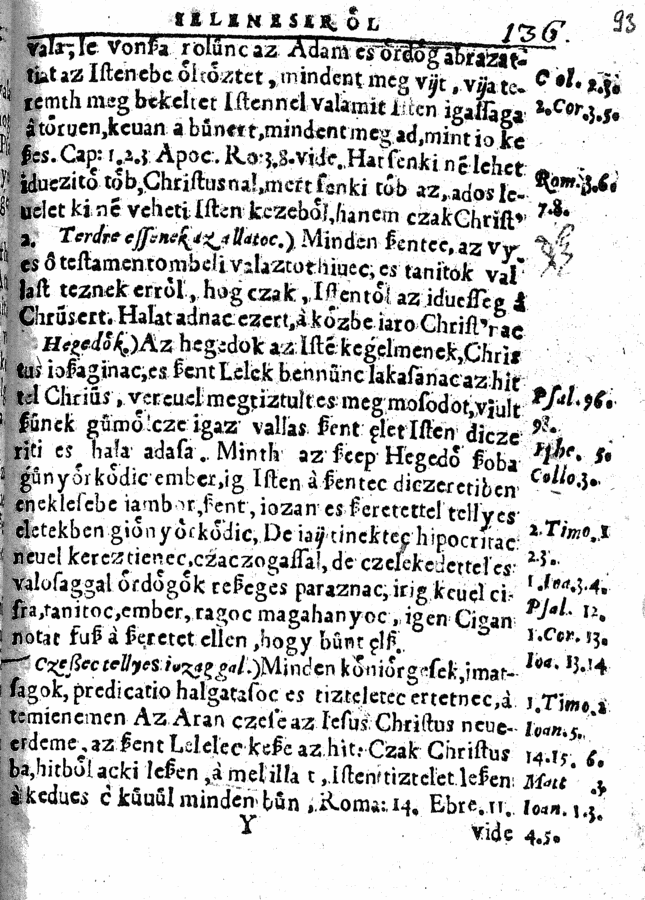 IELENESERÖL 136. 93
vala, se vonßa rolunc az Adam es ördög abrazat-
tiat az Istenebe öltöztet, mindent meg vijt, vija te-
remth meg bekeltet Istennel valamit Isten igassaga
a töruen, keuan a bűnert, mindent meg ad, mint io ke
ßes. Cap: 1.2.3 Apoc. Ro:3.8. vide. Hat senki nē lehet
iduezitö töb, Christusnal, mert senki töb az, ados le-
uelet ki nē veheti Isten kezeböl, hanem czak Christ⁹
2. Terdre essenek az allatoc.) Minden ßentec, az vy.
es ô testamentombeli valaztot hiuec, es tanitok val
last teznek erröl, hog czak, Istentöl az iduesseg à
Chrūsert. Halat adnac ezert, à közbe iaro Christ⁹rac
Hegedök.) Az hegedok az Istē kegelmenek, Chris
tus iosaginac, es ßent Lelek bennünc lakasanac az hit
tel Chriūs, vereuel megtiztult es meg mosodot, viult
ßünek gümölcze igaz vallas ßent ęlet Isten dicze
riti es hala adasa. Minth az ßeep Hegedö ßoba
günyörködic ember, ig Isten à ßentec diczeretiben
eneklesebe iambor, ßent, iozan es ßeretettel tellyes
eletekben giönyörködic, De iaÿ tinektec hipocritac
neuel kereztienec, czaczogassal, de czelekedettel es
valosaggal ördögök reßeges paraznac, irig keuel ci-
fra, tanitoc, ember, ragoc magahanyoc, igen Cigan
notat fuß à ßeretet ellen, hogy bűnt ęlß.
Czeßec tellyes iozag gal.) Minden köniörgesek, imat-
sagok, predicatio halgatasoc es tizteletec ertetnec, à
temienemen Az Aran czese az Iesus Christus neue-
erdeme, az ßent Lelelec keße az hit: Czak Christus
ba, hitböl acki leßen, à mel illa t, Isteni tiztelet leßen
à kedues c̄ küuül minden bűn, Roma: 14. Ebre. 11.
Y vide
Col. 2.3.
2.Cor.3.5.
Rom. 3.6.
7.8.
Psal. 96.
98.
Ephe. 5.
Collo.3.
2.Timo.
2.3.
1.Ioa.3.4.
Psal. 12.
1.Cor. 13.
Ioa. 13.14
1.Timo.2
Ioan.5.
14.15. 6.
Matt 3.
Ioan. 1.3.
4.5.